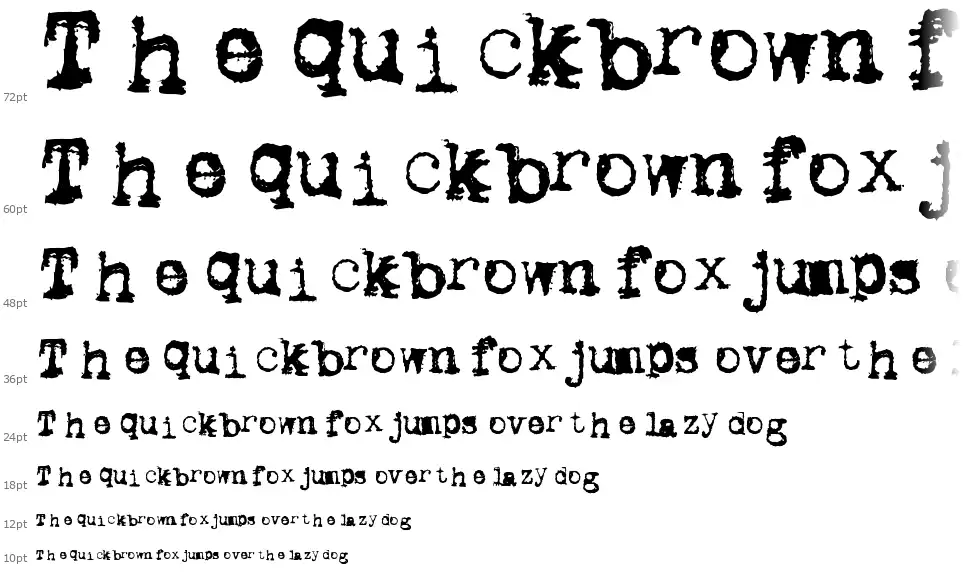 The quick brown f
72pt
The quick brown fox j
60pt
The quick brown fox jumps
48pt
The quick brown fox jumps over the
36pt
The quick brown fox jumps over the lazy dog
24pt
The quick brown fox jumps over the lazy dog
18pt
The quick brown fox jumps over the lazy dog
12pt
The quick brown fox jumps over the lazy dog
10pt